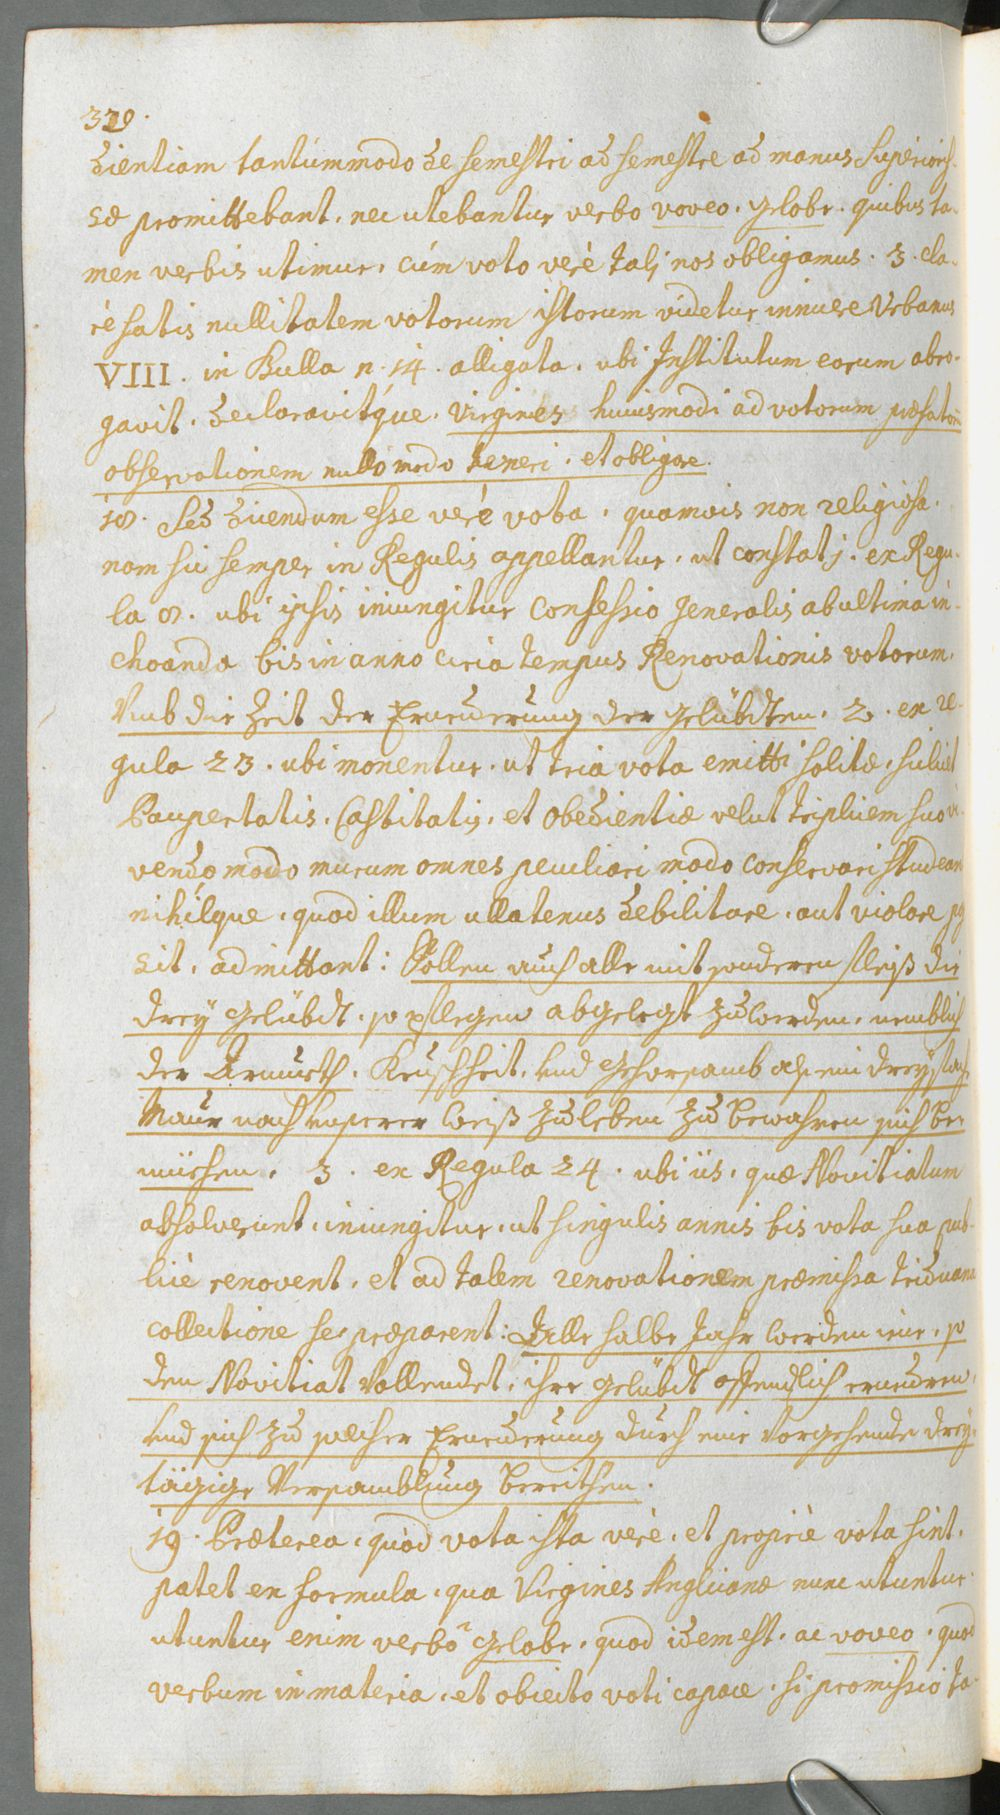 339.
dientiam tantúmmodo de semestri ad semestre ad manus Superioris-
sæ promittebant. nec utebantur verbo voveo. gelobe. quibus ta-
men verbis utimur. cúm voto verè tali nos obligamus. 3. cla-
rè satis nullitatem votorum istorum videtur innuere Urbanus
VIII. in Bulla n. 14. alligata. ubi Institutum earum abro-
gavit. declaravitque. Virgines huiusmodi ad votorum præfatorũ
observationem nullo modo teneri. et obligare.
18. Sed dicendum esse verè vota. quamvis non religiosa.
nam sic semper in Regulis appellantur. ut constat j. ex Regu-
la 8. ubi ipsis iniungitur Confessio generalis ab ultima in-
choanda bis in anno circa tempus Renovationis votorum.
Umb die Zeit der Erneüerung der gelübdten. 2. ex re-
gula 23. ubi monentur. ut tria vota emitti solita. scilicet
Paupertatis. Castitatis. et obedientiæ velut triplicem suo vi-
vendo modo murum omnes peculiari modo conservari studeant
nihilque. quod illum ullatenus debilitare. aut violare pos
sit. admittant: Sollen auch alle mit sonderen fleiß die
drey gelübdt. so pflegen abgelegt zu werden. nemblich
der Armueth. Keüschheit. und gehorsamb als ein dreyfache
Maur nach unserer weiß zu leben zu bewahren sich be-
müehen. 3. ex Regula 24. ubi iis. quæ Novitiatum
absolverunt. iniungitur. ut singulis annis bis vota sua pub-
licè renovent. et ad talem renovationem præmissa triduana
collectione se præparent: Alle halbe Jahr werden iene. so
den Novitiat vollendet. ihre gelübdt offendlich erneüren.
und sich zu solcher Erneüerung durch eine vorgehende drey-
tägige Versamblung bereithen.
19. Præterea. quòd vota ista verè. et propriè vota sint.
patet ex formula. qua Virgines Anglicanæ nunc utuntur.
utuntur enim verbo gelobe. quod idem est. ac voveo. quod
verbum in materia. et obiecto voti capace. si promissio ta-